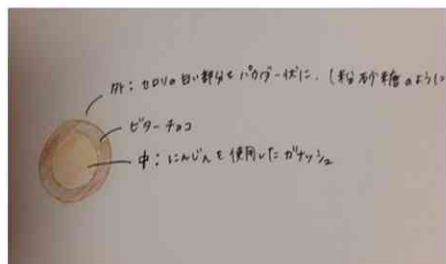 外：セロリの白い部分をパウダー状に．（粉砂糖のように
ビターチョコ
中：にんじんを使用したガナッシュ